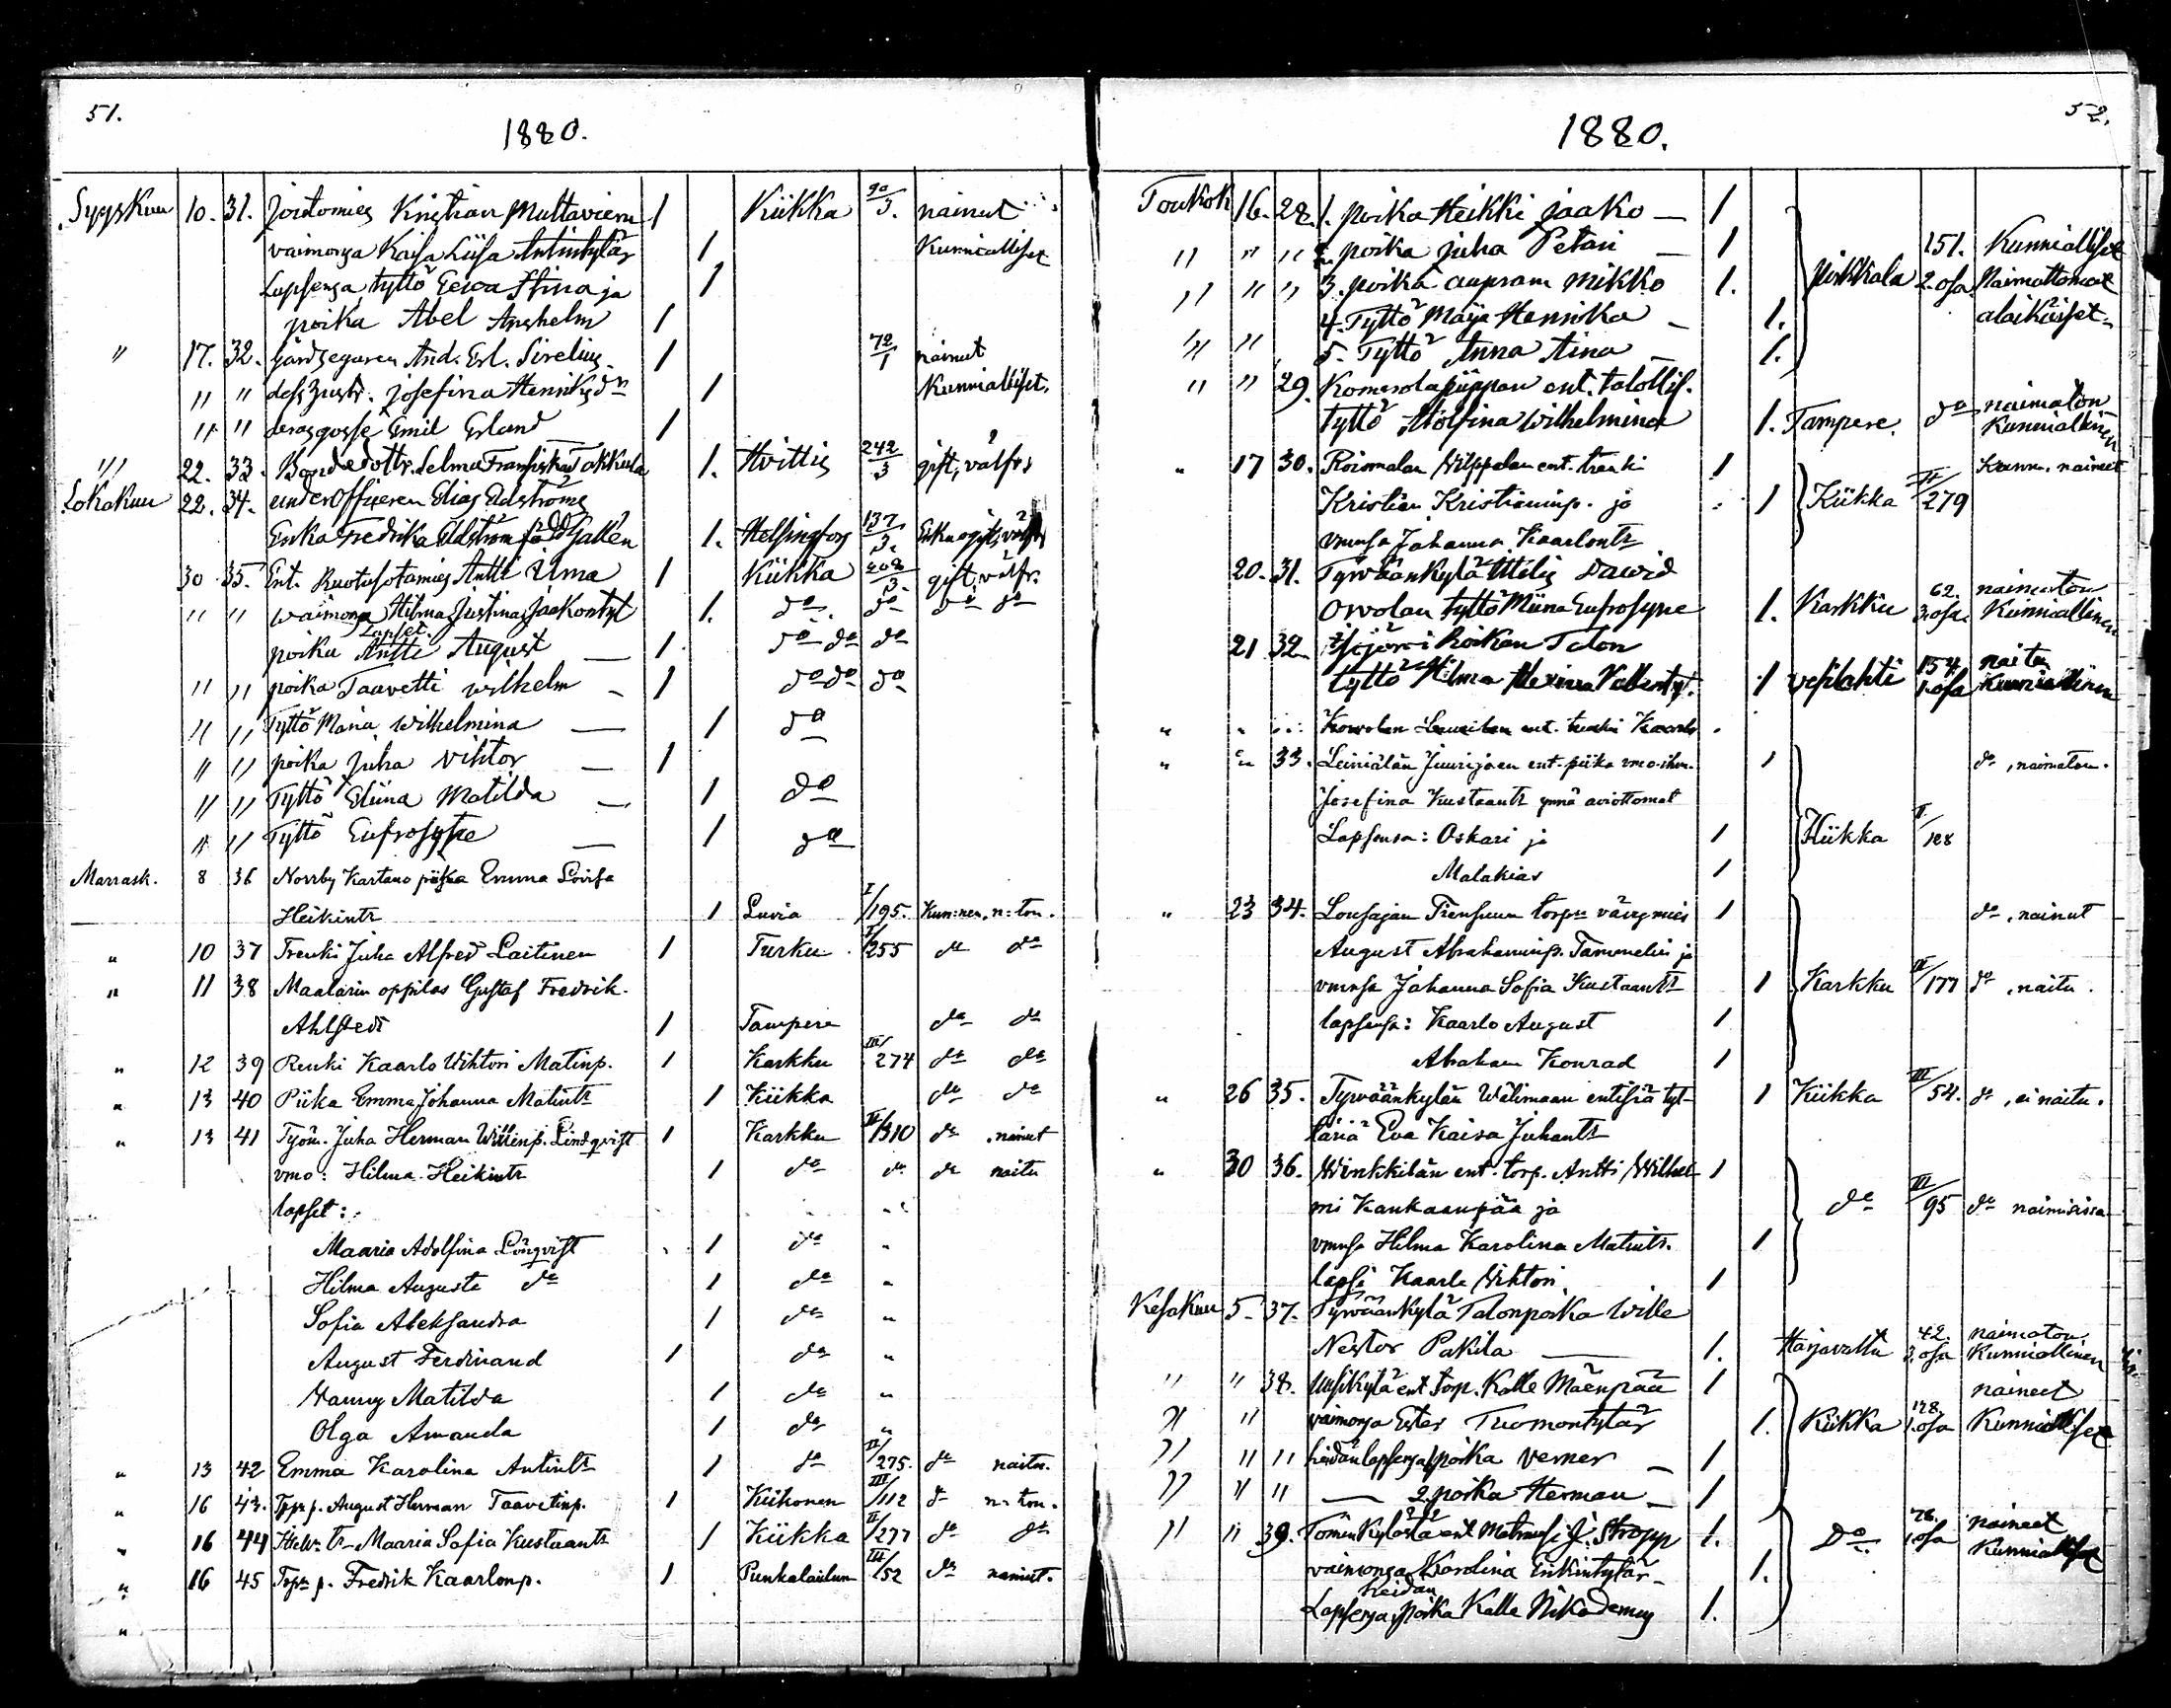 51.
1880.
Syyskuu 10. 31. Kristian Multavieru 1 Kiikka 90/3. nainut
vaimonsa Kaisa Liisa Antintytär 1 Kunnialliset
Lapsensa, tyttö Eewa Stina ja 1
poika Abel Anshelm 1
" 17. 32. And. Erl. Sirelius 1 72/1 nainut
" " dess hustr. Josefina Henriksdr 1 Kunnialliset.
" " deras gosse Emil Erland 1
" 22. 33. Bondedottr. Selma Fransiska Takkula 1. Hvittis 242/3 gift, välfr.
Lokakuu 22. 34. underofficeren Elias Eldströms
Enka Fredrika Eldström född Gallén 1. Helsingfors 137/3. Enka
30 35. Ent. Ruotusotamies Antti Uma 1 Kiikka 208/3. gift, välfr.
" " waimonsa Hilma Justina Jaakontyt 1. do do do do
Lapset.
poika Antti August — 1 do do do
" " poika Taavetti wilhelm — 1 do do do
" " Tyttö Maria Wilhelmina — 1 do
" " poika Juha Vihtor — 1
" " Tyttö Eliina Matilda — 1 do
" " Tyttö Eufrosyne — 1 do
Marrask. 8 36 Norrby Kartano piika Emma Lovisa
Heikintr 1 Luvia I/195. Kun:nen, n:ton.
" 10 37 Trenki Juha Alfred Laitinen 1 Turku I/255 do do
" 11 38 Maalarin oppilas Gustaf Fredrik
Ahlstedt 1 Tampere do do
" 12 39 Renki Kaarlo Wihtori Matinp. 1 Karkku III/274 do do
" 13 40 Piika Emma Johanna Matintr 1 Kiikka do do
" 13 41 Työm. Juha Herman Willenp. Lindqvist 1 Karkku II/310 do nainut
vmo: Hilma Heikintr 1 do do do naitu
lapset:
Maaria Adolfina Lönqvist 1 do "
Hilma Augusta do 1 do "
Sofia Aleksandra 1 do "
August Ferdinand 1 do "
Nanny Matilda 1 do "
Olga Amanda 1 do "
" 13 42 Emma Karolina Antintr 1 do II/275. do naitu.
" 16 43. August Herman Taavetinp. 1 Kiihonen III/112 do n:ton.
" 16 44 Maaria Sofia Kustaantr 1 Kiikka II/277 do do
" 16 45 Fredrik Kaarlonp. 1 Punkalaidun III/52 do nainut.
"
52.
1880.
Toukok 16. 28. 1. poika Heikki Jaako — 1
" " " 2. poika Juha Petari — 1 151. Kunnialliset
" " " 3. poika aupram Mikko 1. Pirkkala 2.osa Naimattomat
4. Tyttö Maija Henrika — 1. alaikäiset
" " 5. Tyttö Anna Stina 1.
" " 29. Komerola piippau ent. talollis.
tyttö Adolfina Wilhelmina 1. Tampere. do naimaton Kunniallinen
" 17 30. Roismalan Wilppalan ent. trenki 1 Kunn. naineet
Kristian Kristianinp. ja 1 Kiikka II/279
vmonsa Johanna Kaarlontr
20. 31. Tyrväänkylä Uotila Dawid
Orvolan tyttö Miina Eufrosyne 1. Karkku 62. 3.osa. naimaton Kunniallinen
21 32. Talon
tyttö Hilma 1 vesilahti 154. 1.osa naitu Kunniallinen
" " ent. trenki Kaarlo
" " 33. Leiniälän Juurijoen ent. piika vmo-ihm. 1 do, naimaton.
Josefina Kustaantr ynnä aviottomat
Lapsensa: Oskari ja 1 Kiikka II/128
Malakias 1
" 23 34. Lousajan Tiensuun torpn väinmies 1 do, nainut
August Abrahaminp. Tammelin ja
vmonsa Johanna Sofia Kustaantr 1 Karkku II/177 do, naitu.
lapsensa: Kaarlo August 1
Abraham Konrad 1
" 26 35. Tyrväänkylän Wälimaan entisiä tyt- 1 Kiikka III/54. do, ei naitu.
täriä Eva Kaisa Juhantr
" 30 36. Winkkilän ent. torp. Antti Wilhel- 1
mi Kankaanpää ja do III/95 do naimisissa
vmonsa Hilma Karolina Matintr. 1
lapsi Kaarle Wihtori 1
Kesäkuu 5. 37. Tyrväänkylä Talonpoika Wille
Nestor Pakila — 1. Harjavalta 42. 3.osa naimaton Kunniallinen
" " 38. Uusikylä ent torp. Kalle Mäenpää 1 naineet
" " vaimonsa Ester Tuomontytär 1. Kiikka 128. 1.osa Kunnialliset
" " " heidän lapsensa poika Verner — 1
" " " — 2 poika Herman — 1
" " 39. J. Stropp 1. Do 76. 1.osa naineet Kunnialliset
vaimonsa Karolina Erkintytär — 1.
heidän
Lapsensa poika Kalle Nikodemus 1.